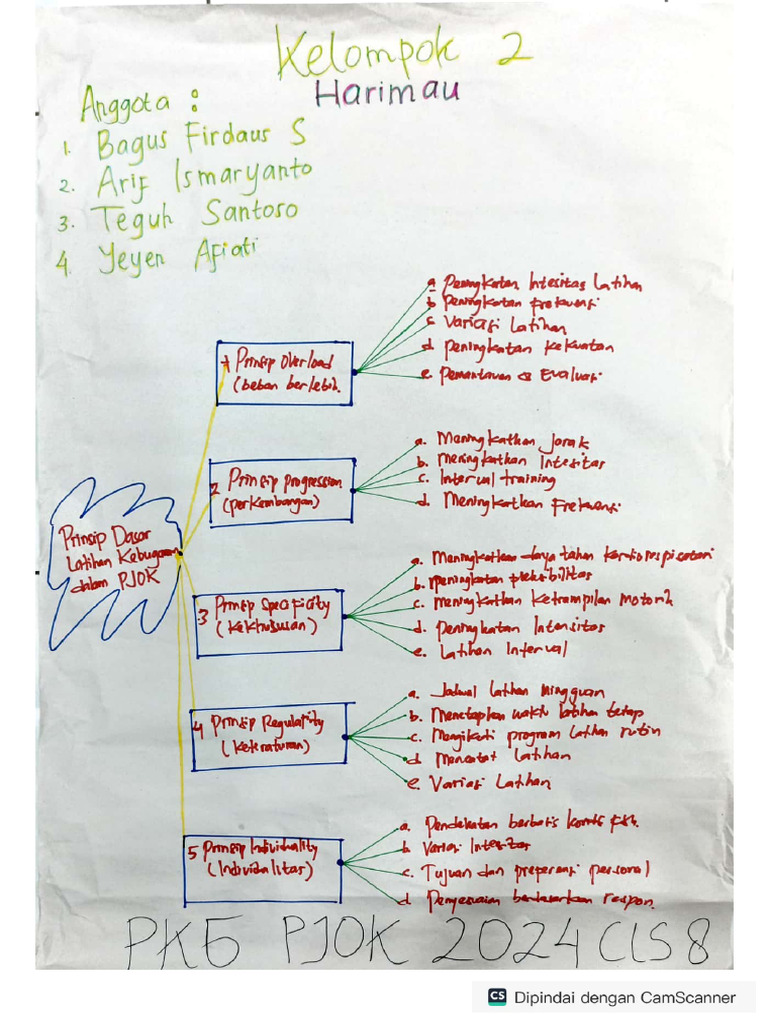 Kelompok 2
Harimau
Anggota :
1. Bagus Firdaus S
2. Arif Ismaryanto
3. Teguh Santoso
4. Yeyen Afiati
Prinsip Dasar
Latihan Kebugaran
dalam PJOK
1 Prinsip Overload
(beban berlebih.
a. Peningkatan Intesitas Latihan
b. Peningkatan frekuensi
c. Variasi Latihan
d. peningkatan kekuatan
e. Pemantauan & Evaluasi
2 Prinsip progression
(perkembangan)
a. Meningkatkan Jarak
b. Meningkatkan Intesitas
c. Interval training
d. Meningkatkan Frekuensi
3 Prinsip Specificity
(kekhususan)
a. Meningkatkan daya tahan kardiorespiratori
b. meningkatan fleksibilitas
c. Meningkatkan Ketrampilan Motorik
d. Peningkatan Intensitas
e. Latihan Interval
4 Prinsip Regularity
(keteraturan)
a. Jadwal latihan mingguan
b. Menetapkan waktu latihan tetap
c. Mengikuti program latihan rutin
d. Mencatat latihan
e. Variasi Latihan
5 Prinsip Individuality
(Individualitas)
a. Pendekatan berbasis kondisi fisik.
b Variasi Intesitas
c. Tujuan dan preferensi personal
d Penyesuaian berdasarkan respon.
PKB PJOK 2024 CLS 8
CS Dipindai dengan CamScanner